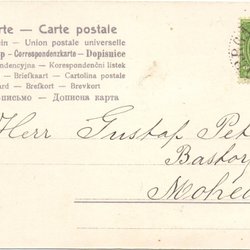 arte – Carte postale
ein – Union postale universelle
p – Correspondenzkarte – Dopisnice
ondencyjna – Korespondenční listek
– Briefkaart – Cartolina postale
ard – Brefkort – Brevkort
письмо – Дописна карта
Herr Gustaf Pet
Baskory
Mohed